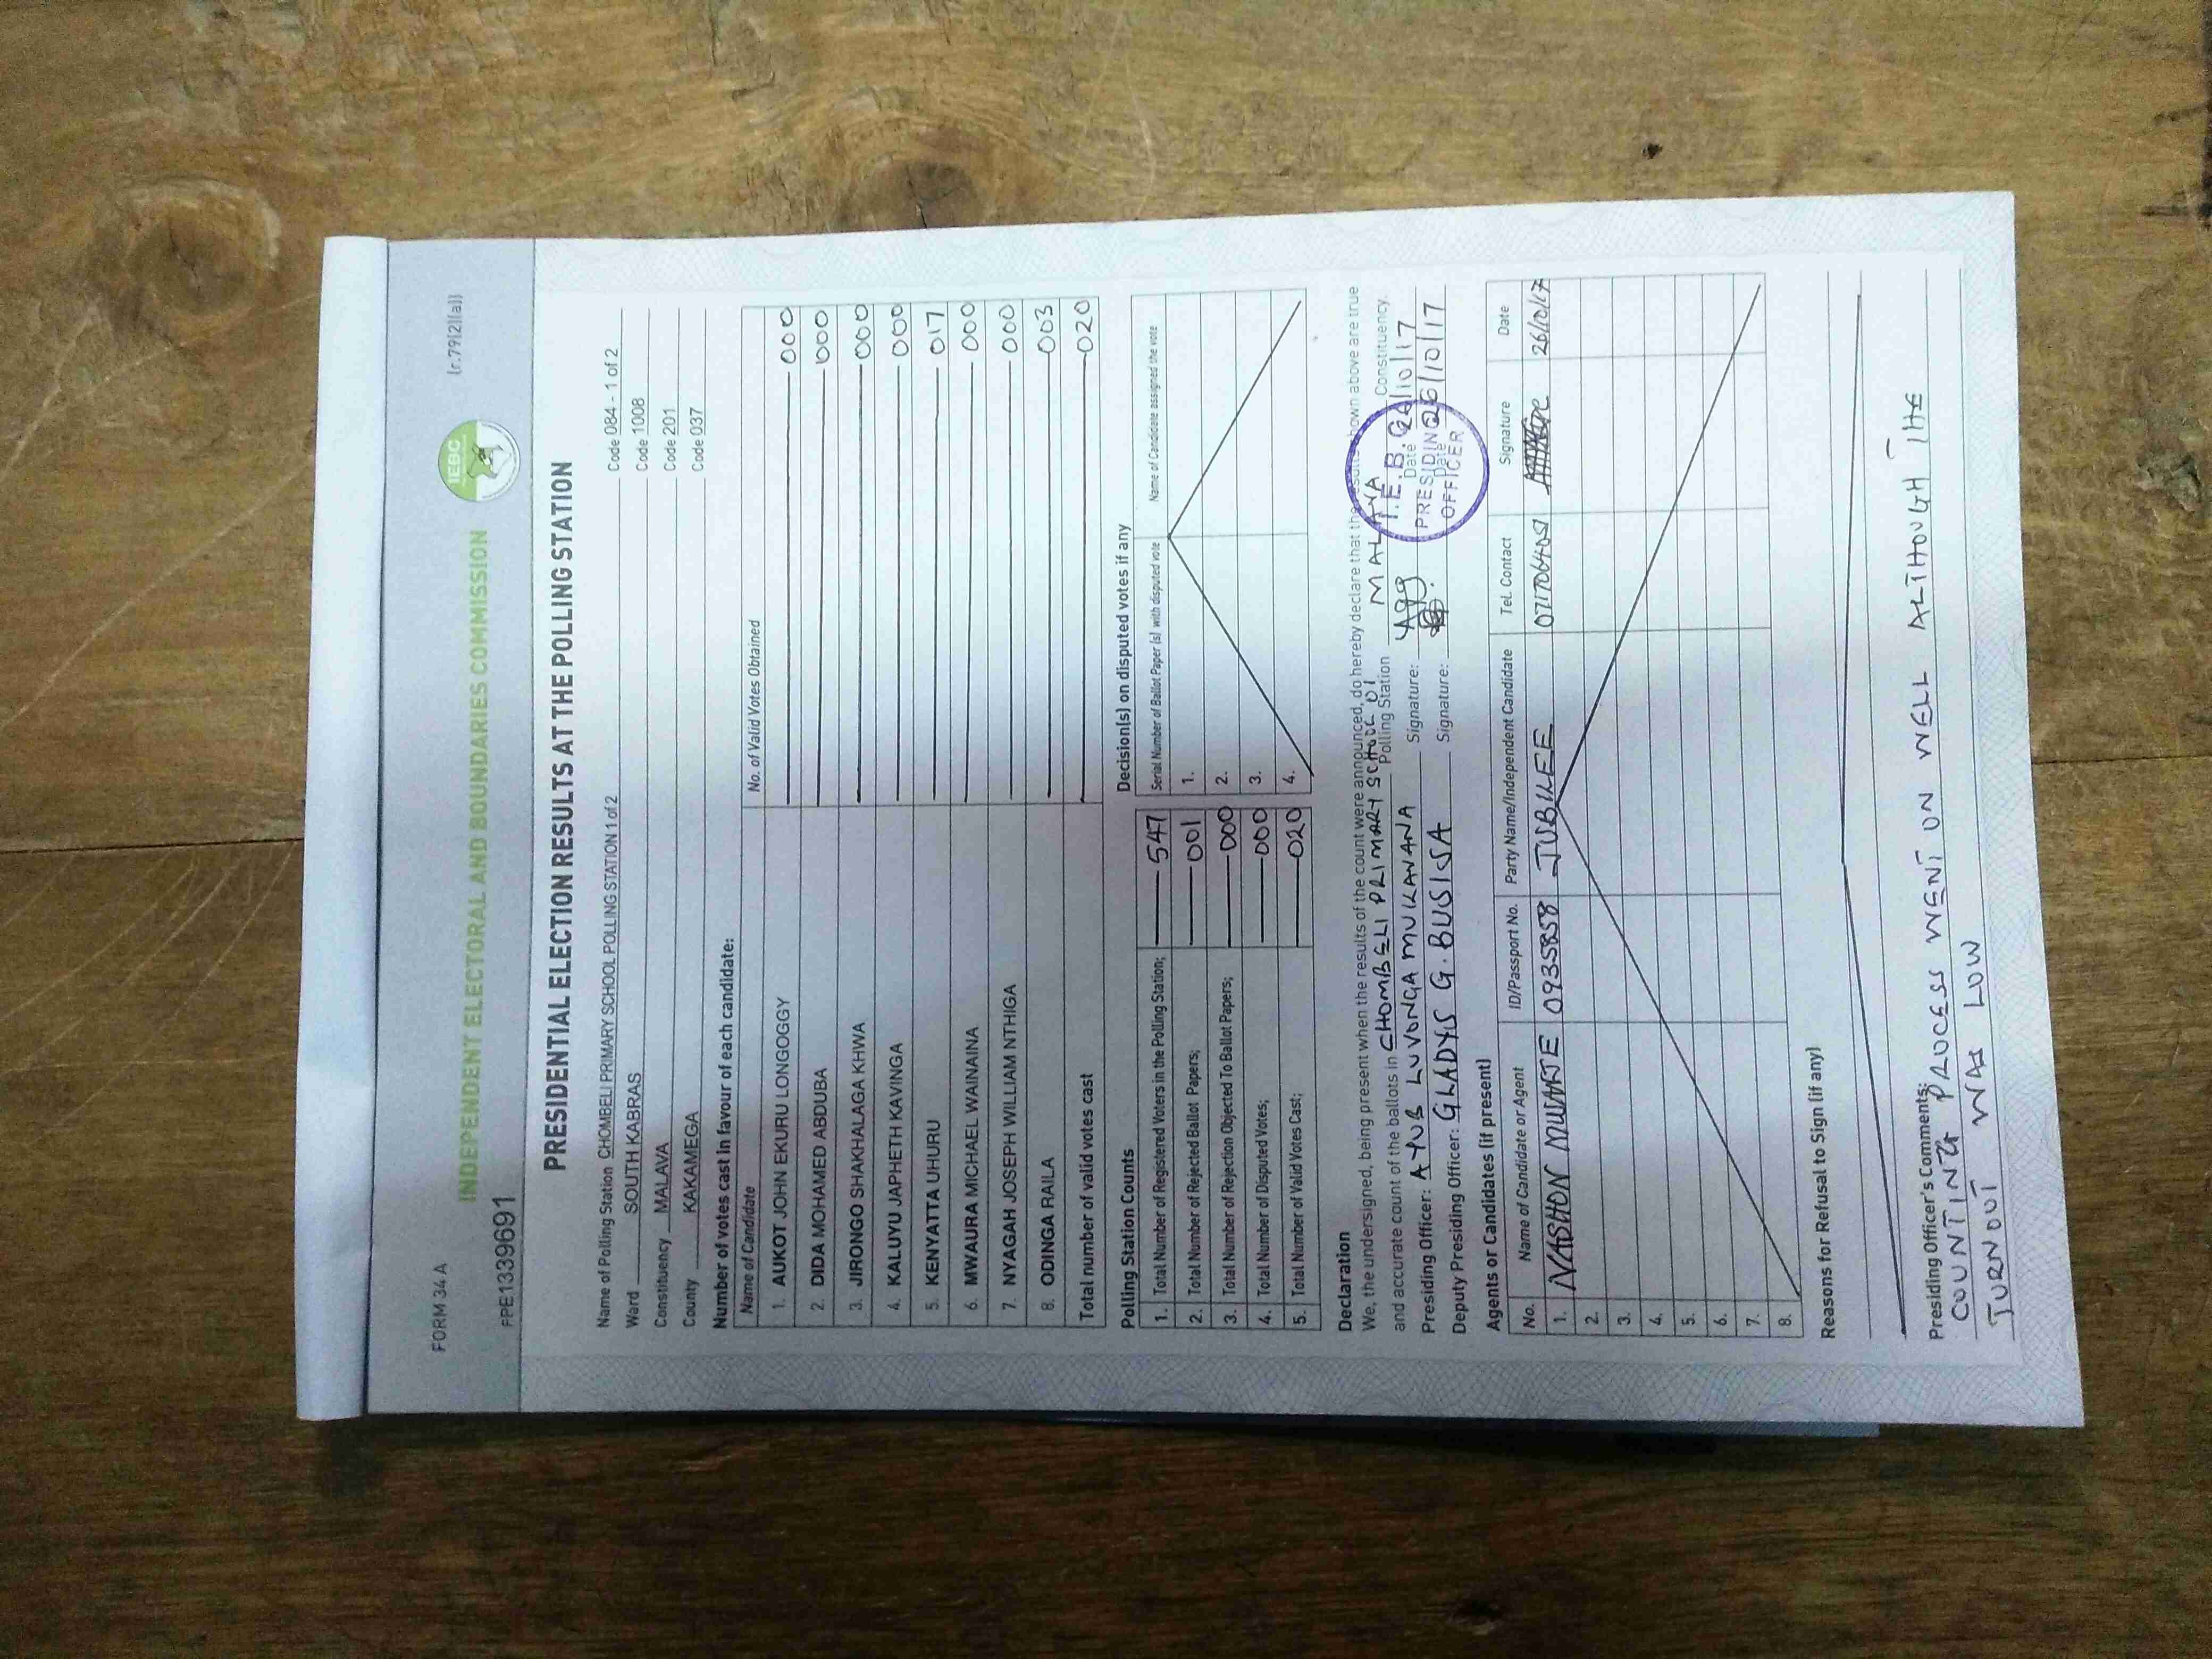 FORM 34 A
(r.79(2)(a))
INDEPENDENT ELECTORAL AND BOUNDARIES COMMISSION
IEBC
PPE1339691
PRESIDENTIAL ELECTION RESULTS AT THE POLLING STATION
Name of Polling Station CHOMBELI PRIMARY SCHOOL POLLING STATION 1 of 2 Code 084 - 1 of 2
Ward SOUTH KABRAS Code 1008
Constituency MALAVA Code 201
County KAKAMEGA Code 037
Number of votes cast in favour of each candidate:
Name of Candidate No. of Valid Votes Obtained
1. AUKOT JOHN EKURU LONGOGGY 000
2. DIDA MOHAMED ABDUBA 000
3. JIRONGO SHAKHALAGA KHWA 000
4. KALUYU JAPHETH KAVINGA 000
5. KENYATTA UHURU 017
6. MWAURA MICHAEL WAINAINA 000
7. NYAGAH JOSEPH WILLIAM NTHIGA 000
8. ODINGA RAILA 003
Total number of valid votes cast 020
Polling Station Counts
1. Total Number of Registered Voters in the Polling Station; 547
2. Total Number of Rejected Ballot Papers; 001
3. Total Number of Rejection Objected To Ballot Papers; 000
4. Total Number of Disputed Votes; 000
5. Total Number of Valid Votes Cast; 020
Decision(s) on disputed votes if any
Serial Number of Ballot Paper (s) with disputed vote Name of Candidate assigned the vote
1.
2.
3.
4.
Declaration
We, the undersigned, being present when the results of the count were announced, do hereby declare that the results shown above are true
and accurate count of the ballots in CHOMBELI PRIMARY SCHOOL 01 Polling Station MALAVA Constituency.
Presiding Officer: AYUB LUVONGA MUKANANA Signature: Date 26/10/17
Deputy Presiding Officer: GLADYS G. BUSISA Signature: Date 26/10/17
I.E.B.C
PRESIDING
OFFICER
Agents or Candidates (if present)
No. Name of Candidate or Agent ID/Passport No. Party Name/Independent Candidate Tel. Contact Signature Date
1. NASHON 0935858 JUBILEE 26/10/17
2.
3.
4.
5.
6.
7.
8.
Reasons for Refusal to Sign (if any)
Presiding Officer's Comments:
COUNTING PROCESS WENT ON WELL ALTHOUGH THE
TURNOUT WAS LOW